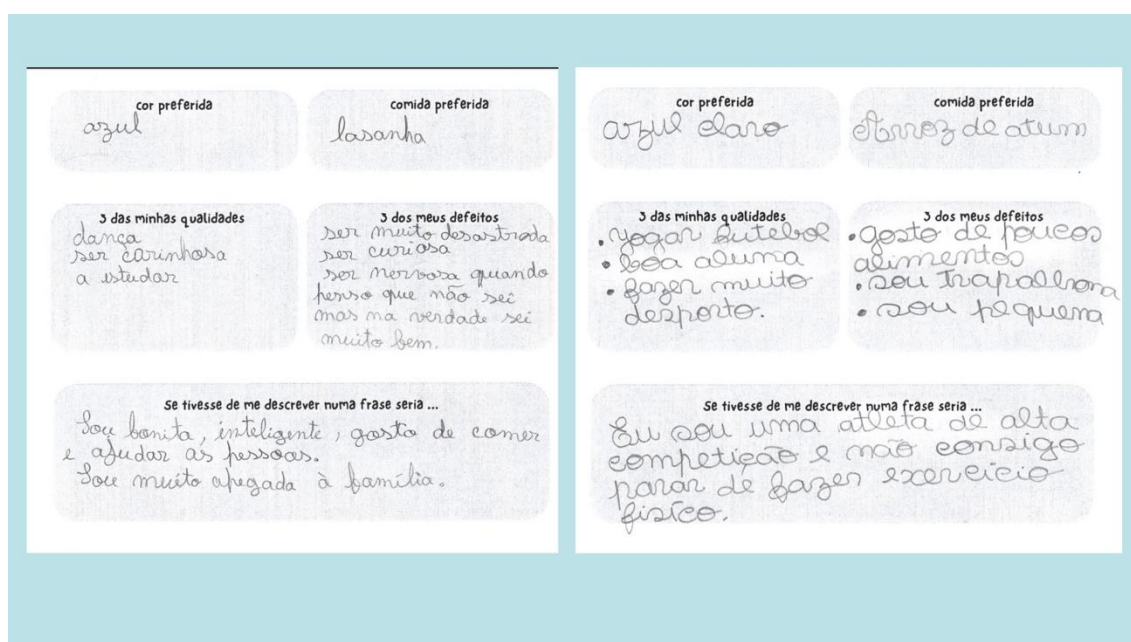 cor preferida
azul
comida preferida
lasanha
3 das minhas qualidades
dança
ser carinhosa
a estudar
3 dos meus defeitos
ser muito desastrada
ser curiosa
ser nervosa quando
penso que não sei
mas na verdade sei
muito bem.
Se tivesse de me descrever numa frase seria ...
Sou bonita, inteligente, gosto de comer
e ajudar as pessoas.
Sou muito apegada à família.
cor preferida
azul claro
comida preferida
Arroz de atum
3 das minhas qualidades
• jogar futebol
• boa aluna
• fazer muito
desporto.
3 dos meus defeitos
• gosto de poucos
alimentos
• sou trapalhona
• sou pequena
Se tivesse de me descrever numa frase seria ...
Eu sou uma atleta de alta
competição e não consigo
parar de fazer exercício
físico.